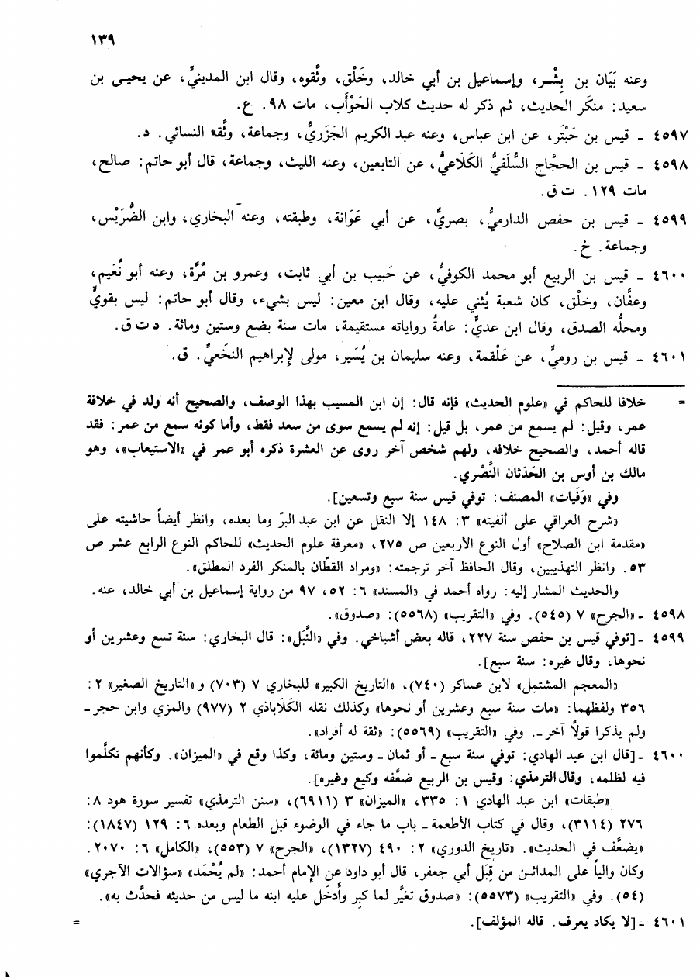 ١٣٩
وعنه بَيَان بن بِشْر، وإسماعيل بن أبي خالد، وخَلْق، وثَّقوه، وقال ابن المدينيِّ، عن يحيى بن
سعيد: منكَر الحديث، ثم ذكر له حديث كلاب الحَوْأَب، مات ٩٨. ع.
٤٥٩٧ ـ قيس بن حَبْتَر، عن ابن عباس، وعنه عبد الكريم الجَزَريُّ، وجماعة، وثَّقه النسائي. د.
٤٥٩٨ ـ قيس بن الحجَّاج السُّلَفيُّ الكَلَاعيُّ، عن التابعين، وعنه الليث، وجماعة، قال أبو حاتم: صالح،
مات ١٢٩. ت ق.
٤٥٩٩ ـ قيس بن حفص الدارميُّ، بصريٌّ، عن أبي عَوَانة، وطبقته، وعنه البخاري، وابن الضُّرَيْس،
وجماعة. خ.
٤٦٠٠ ـ قيس بن الربيع أبو محمد الكوفيُّ، عن حَبيب بن أبي ثابت، وعمرو بن مُرَّة، وعنه أبو نُعَيم،
وعفَّان، وخَلْق، كان شعبة يُثني عليه، وقال ابن معين: ليس بشيء، وقال أبو حاتم: ليس بقويٍّ
ومحلُّه الصدق، وقال ابن عديٍّ: عامةُ رواياته مستقيمة، مات سنة بضع وستين ومائة. د ت ق.
٤٦٠١ ـ قيس بن روميٍّ، عن عَلْقمة، وعنه سليمان بن يُسَير، مولى لإبراهيم النخَعيِّ. ق.
= خلافا للحاكم في «علوم الحديث» فإنه قال: إن ابن المسيب بهذا الوصف، والصحيح أنه ولد في خلافة
عمر، وقيل: لم يسمع من عمر، بل قيل: إنه لم يسمع سوى من سعد فقط، وأما كونه سمع من عمر: فقد
قاله أحمد، والصحيح خلافه، ولهم شخص آخر روى عن العشرة ذكره أبو عمر في «الاستيعاب»، وهو
مالك بن أوس بن الحَدَثان النَّصْري.
وفي «وَفَيات» المصنف: توفي قيس سنة سبع وتسعين].
«شرح العراقي على ألفيته» ٣: ١٤٨ إلا النقل عن ابن عبد البرّ وما بعده، وانظر أيضاً حاشيته على
«مقدمة ابن الصلاح» أول النوع الأربعين ص ٢٧٥، «معرفة علوم الحديث» للحاكم النوع الرابع عشر ص
٥٣. وانظر التهذيبين، وقال الحافظ آخر ترجمته: «ومراد القطَّان بالمنكر الفرد المطلق».
والحديث المشار إليه: رواه أحمد في «المسند» ٦: ٥٢، ٩٧ من رواية إسماعيل بن أبي خالد، عنه.
٤٥٩٨ ـ «الجرح» ٧ (٥٤٥). وفي «التقريب» (٥٥٦٨): «صدوق».
٤٥٩٩ ـ [توفي قيس بن حفص سنة ٢٢٧، قاله بعض أشياخي. وفي «النَّبَل»: قال البخاري: سنة تسع وعشرين أو
نحوها، وقال غيره: سنة سبع].
«المعجم المشتمل» لابن عساكر (٧٤٠)، «التاريخ الكبير» للبخاري ٧ (٧٠٣) و«التاريخ الصغير» ٢:
٣٥٦ ولفظهما: «مات سنة سبع وعشرين أو نحوها» وكذلك نقله الكَلَاباذي ٢ (٩٧٧) والمزي وابن حجر ـ
ولم يذكرا قولًا آخر ـ. وفي «التقريب» (٥٥٦٩): «ثقة له أفراد».
٤٦٠٠ ـ [قال ابن عبد الهادي: توفي سنة سبع ـ أو ثمان ـ وستين ومائة، وكذا وقع في «الميزان». وكأنهم تكلَّموا
فيه لظلمه، وقال الترمذي: وقيس بن الربيع ضعَّفه وكيع وغيره].
«طبقات» ابن عبد الهادي ١: ٣٣٥، «الميزان» ٣ (٦٩١١)، «سنن الترمذي» تفسير سورة هود ٨:
٢٧٦ (٣١١٤)، وقال في كتاب الأطعمة ـ باب ما جاء في الوضوء قبل الطعام وبعده ٦: ١٢٩ (١٨٤٧):
«يضعَّف في الحديث». «تاريخ الدوري» ٢: ٤٩٠ (١٣٢٧)، «الجرح» ٧ (٥٥٣)، «الكامل» ٦: ٢٠٧٠.
وكان والياً على المدائن من قِبَل أبي جعفر، قال أبو داود عن الإمام أحمد: «لم يُحْمَد» «سؤالات الآجري»
(٥٤). وفي «التقريب» (٥٥٧٣): «صدوق تغيَّر لما كبر وأَدخَل عليه ابنه ما ليس من حديثه فحدَّث به».
٤٦٠١ ـ [لا يكاد يعرف. قاله المؤلف]. =